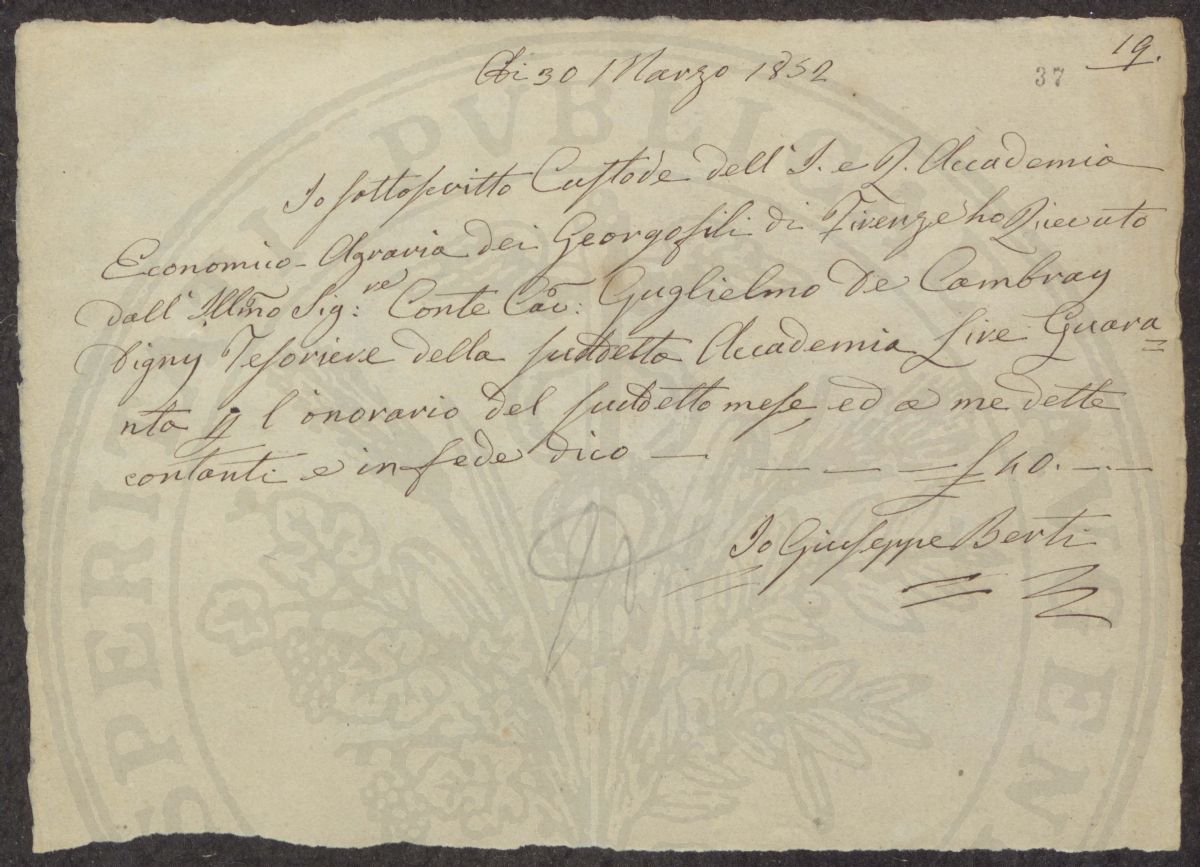 19.
37
Adi 30 Marzo 1852
Io sottoscritto Custode dell' I. e R. Accademia
Economico-Agraria dei Georgofili di Firenze ho Ricevuto
dall' Illmo Sig:re Conte Cav: Guglielmo De Cambray
Digny Tesoriere della suddetta Accademia Lire Quara=
nta p l'onorario del suddetto mese ed a me dette
contanti e in fede dico — — — — £ 40. — —
Io Giuseppe Berti
PUBLICAE
PROSPERITATI
AUGENDAE